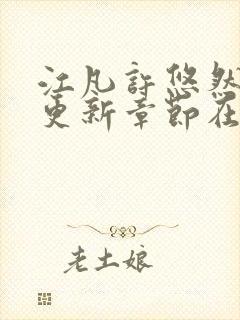 江凡許悠然
更新章節在
老土娘